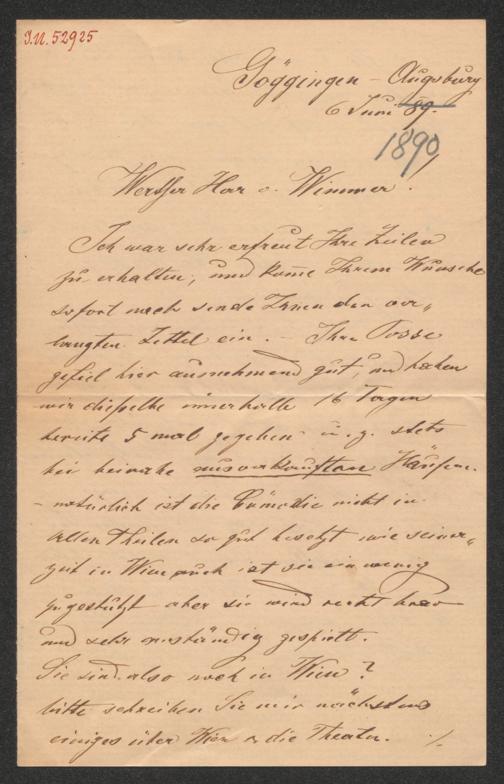 I.N. 52925
Göggingen - Augsburg
6 Juni 89.
1890
Werther Herr v. Wimmer!
Ich war sehr erfreut Ihre Zeilen
zu erhalten, und kome Ihrem Wunsche
sofort nach sende Ihnen den ver„
langten Zettel ein. - Ihre Posse
gefiel hier ausnehmend gut, und haben
wir dieselbe innerhalb 16 Tagen
bereits 5 mal gegeben u. z. stets
bei beinahe ausverkauften Häusern.
- natürlich ist die Comödie nicht in
allen Theilen so gut besetzt wie seiner„
zeit in Wien auch ist sie ein wenig
zugestutzt aber sie wird recht brav
und sehr anständig gespielt.
Sie sind also noch in Wien?
bitte schreiben Sie mir nächstens
einiges über Wien u. die Theater. ./.